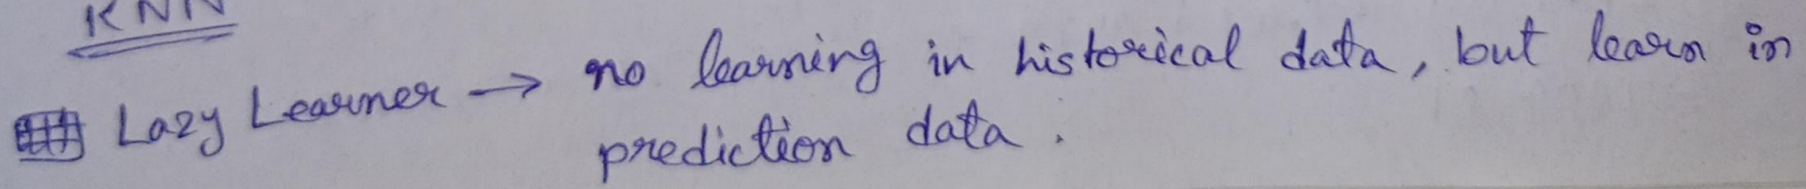 KNN
Lazy Learner → no learning in historical data, but learn in
prediction data.